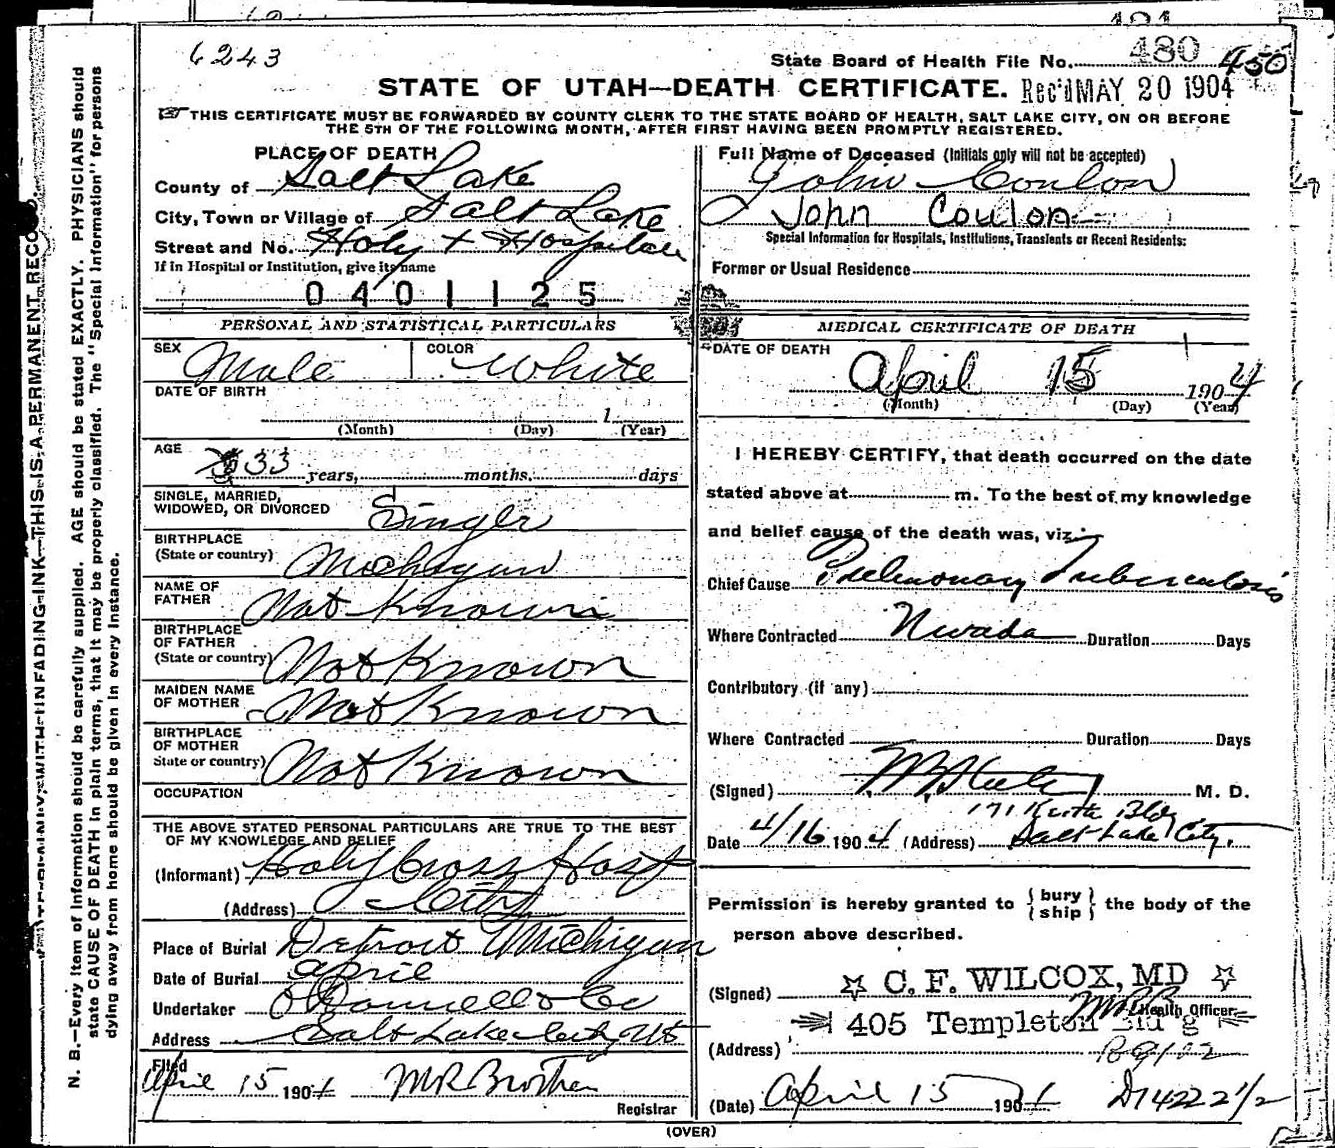 6243
480
State Board of Health File No. 450
STATE OF UTAH—DEATH CERTIFICATE. Rec'd MAY 20 1904
THIS CERTIFICATE MUST BE FORWARDED BY COUNTY CLERK TO THE STATE BOARD OF HEALTH, SALT LAKE CITY, ON OR BEFORE
THE 5TH OF THE FOLLOWING MONTH, AFTER FIRST HAVING BEEN PROMPTLY REGISTERED.
PLACE OF DEATH
County of Salt Lake
City, Town or Village of Salt Lake
Street and No. Holy + Hospital
If in Hospital or Institution, give its name
0401125
PERSONAL AND STATISTICAL PARTICULARS
SEX Male COLOR White
DATE OF BIRTH
1
(Month) (Day) (Year)
AGE 33 years, months, days
SINGLE, MARRIED,
WIDOWED, OR DIVORCED Single
BIRTHPLACE
(State or country) Michigan
NAME OF
FATHER Not Known
BIRTHPLACE
OF FATHER
(State or country) Not Known
MAIDEN NAME
OF MOTHER Not Known
BIRTHPLACE
OF MOTHER
State or country) Not Known
OCCUPATION
THE ABOVE STATED PERSONAL PARTICULARS ARE TRUE TO THE BEST
OF MY KNOWLEDGE AND BELIEF
(Informant) Holy Cross Hosp
(Address) City
Place of Burial Detroit Michigan
Date of Burial April
Undertaker O'Donnell & Co
Address Salt Lake City Ut
Filed
April 15 1904
Registrar
Full Name of Deceased (Initials only will not be accepted)
John Coulon
John Coulon
Special Information for Hospitals, Institutions, Transients or Recent Residents:
Former or Usual Residence
MEDICAL CERTIFICATE OF DEATH
DATE OF DEATH
April 15 1904
(Month) (Day) (Year)
I HEREBY CERTIFY, that death occurred on the date
stated above at m. To the best of my knowledge
and belief cause of the death was, viz:
Chief Cause Pulmonary Tuberculosis
Where Contracted Nevada Duration Days
Contributory (if any)
Where Contracted Duration Days
(Signed) M. D.
171 Bldg
Date 4/16 1904 (Address) Salt Lake City.
Permission is hereby granted to { bury } the body of the
{ ship }
person above described.
(Signed) C. F. WILCOX, MD
Health Officer
405 Templeton Bld'g
(Address)
(Date) April 15 1904 D14222 1/2
(OVER)
N. B.—Every item of information should be carefully supplied. AGE should be stated EXACTLY. PHYSICIANS should
state CAUSE OF DEATH in plain terms, that it may be properly classified. The "Special Information" for persons
dying away from home should be given in every instance.
WITH UNFADING INK—THIS IS A PERMANENT RECORD